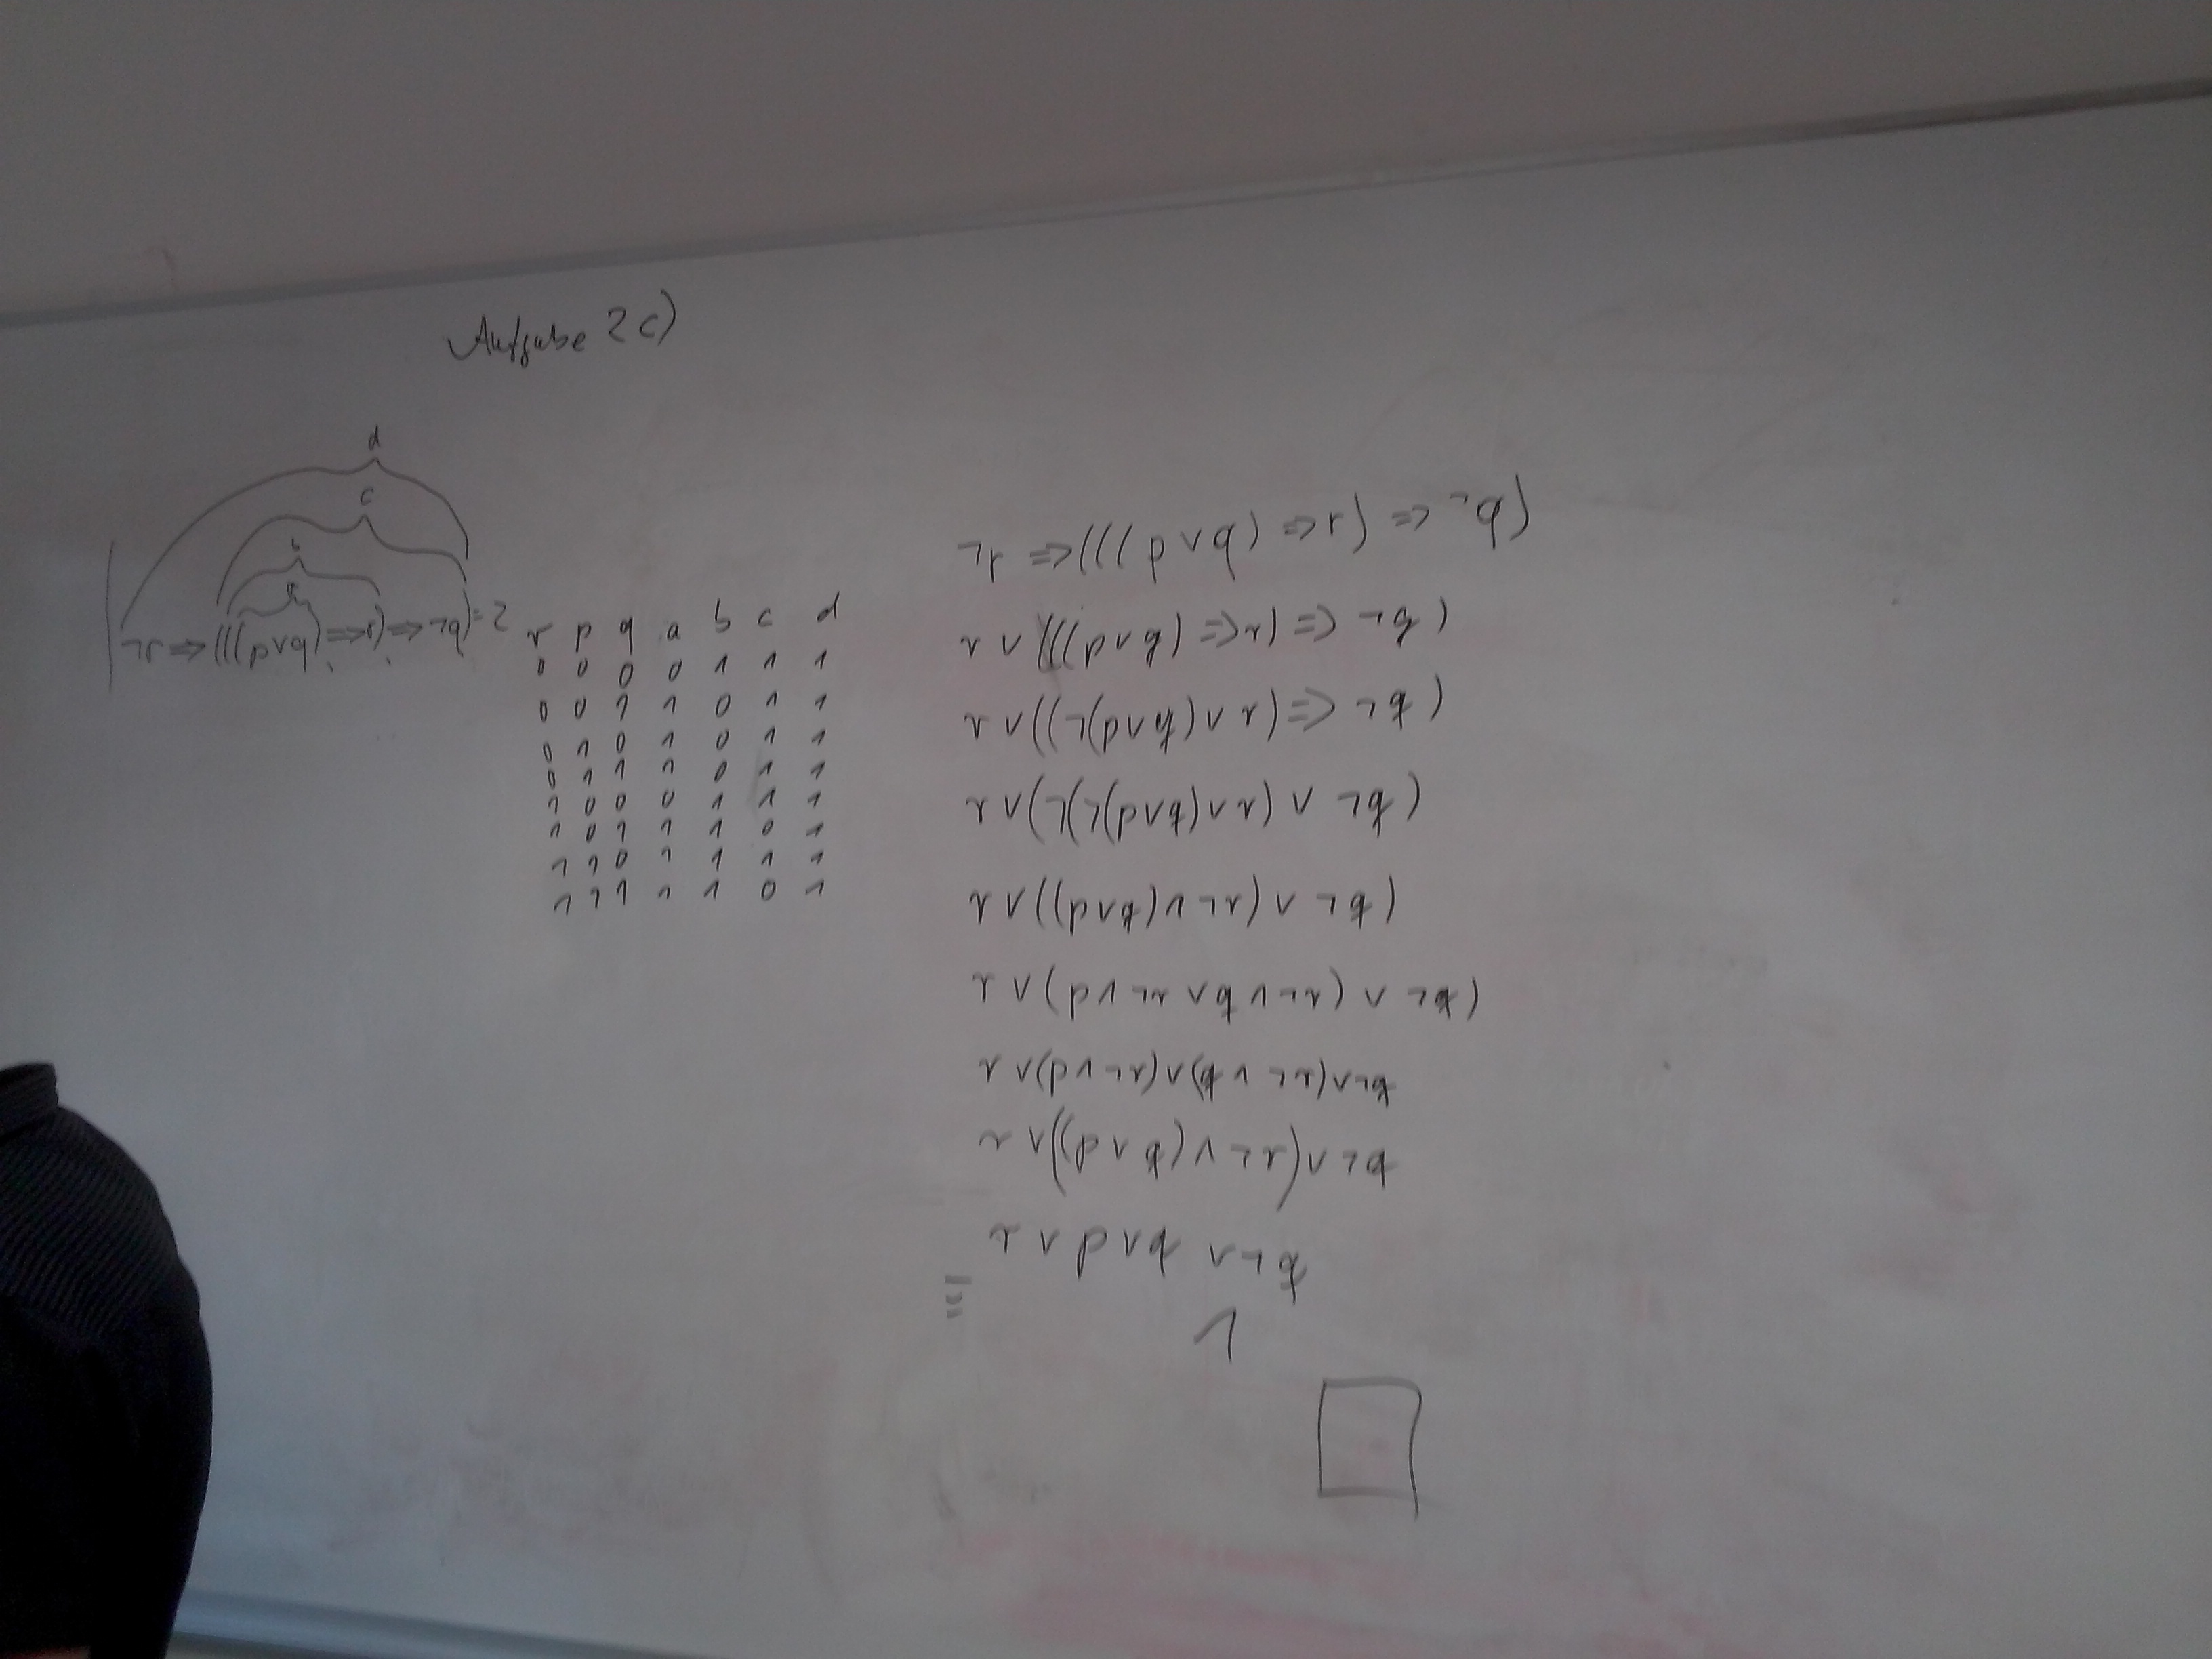 Aufgabe 2c)
d
c
b
a
¬r => (((p∨q) => r) => ¬q) = z
r p q a b c d
0 0 0 0 1 1 1
0 0 1 1 0 1 1
0 1 0 1 0 1 1
0 1 1 1 0 1 1
1 0 0 0 1 1 1
1 0 1 1 1 0 1
1 1 0 1 1 1 1
1 1 1 1 1 0 1
¬r => (((p ∨ q) => r) => ¬q)
r ∨ (((p ∨ q) => r) => ¬q)
r ∨ ((¬(p ∨ q) ∨ r) => ¬q)
r ∨ (¬(¬(p ∨ q) ∨ r) ∨ ¬q)
r ∨ ((p ∨ q) ∧ ¬r) ∨ ¬q)
r ∨ (p ∧ ¬r ∨ q ∧ ¬r) ∨ ¬q)
r ∨ (p ∧ ¬r) ∨ (q ∧ ¬r) ∨ ¬q
r ∨ ((p ∨ q) ∧ ¬r) ∨ ¬q
r ∨ p ∨ q ∨ ¬q
1